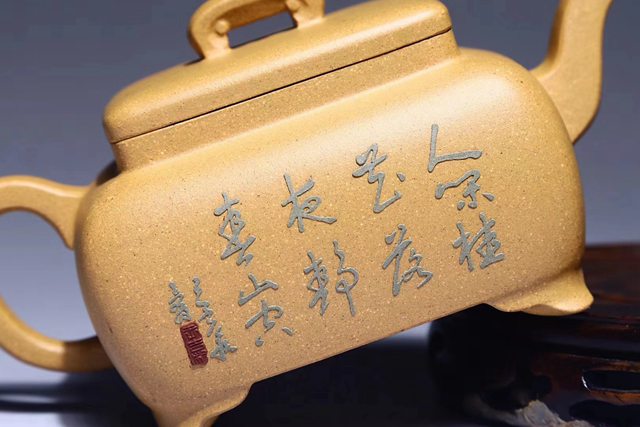 人闲桂
花落
夜静
春山空